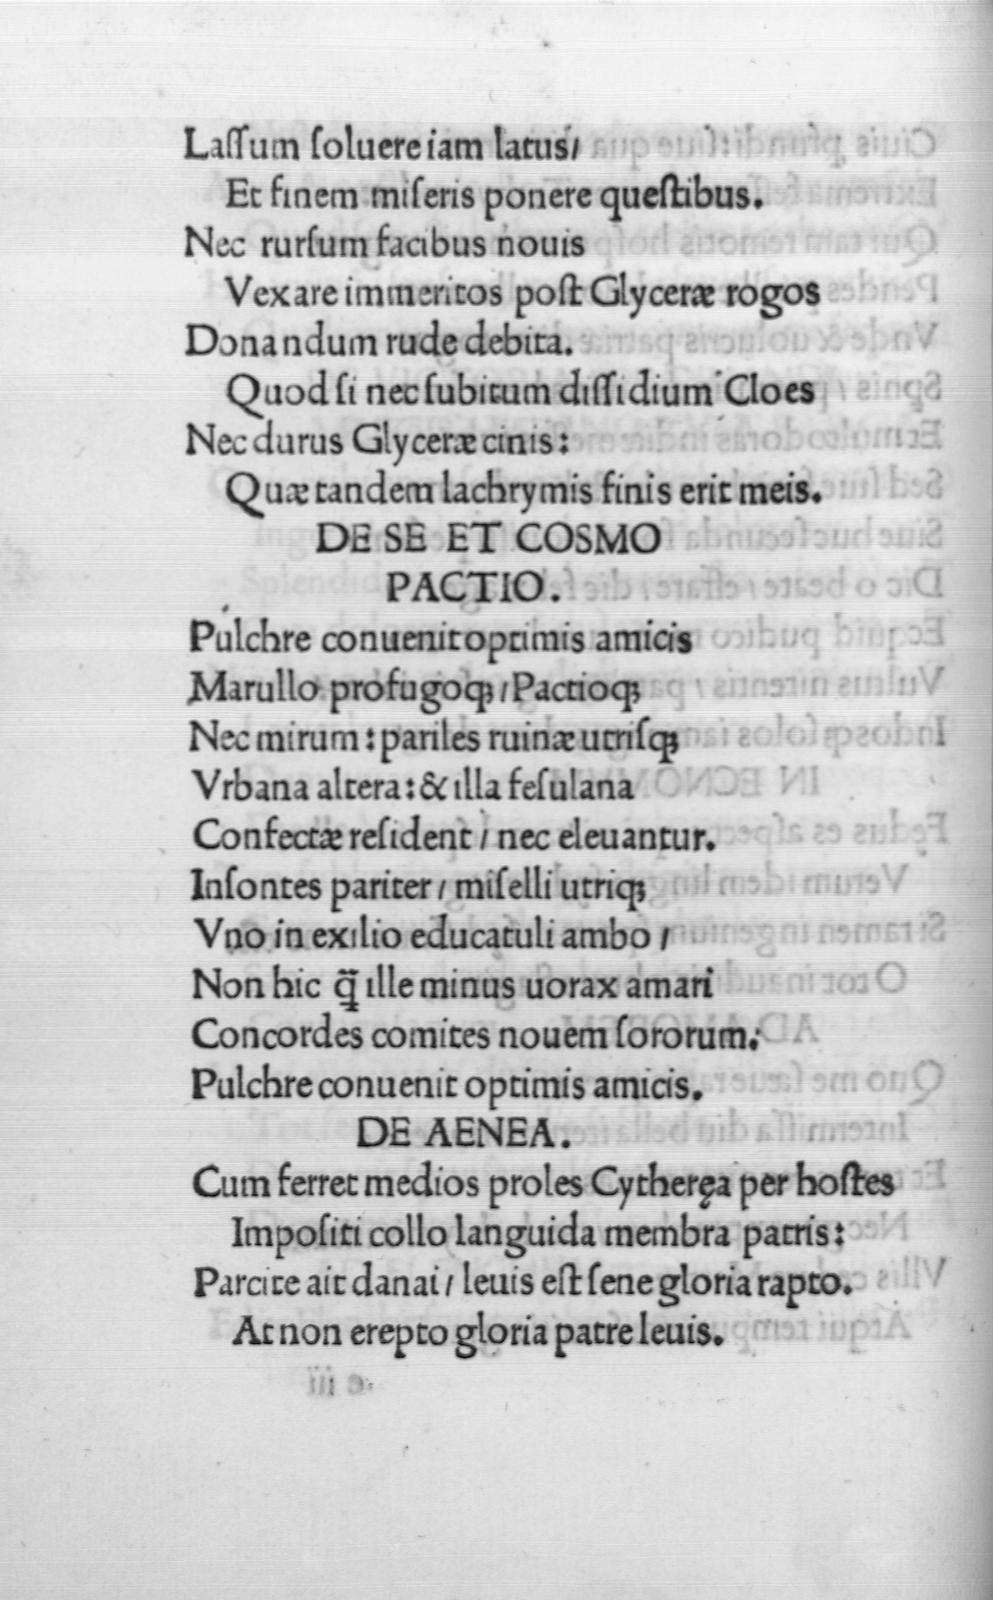 Laſſum ſoluere iam latus/
Et finem miſeris ponere queſtibus.
Nec rurſum facibus nouis
Vexare immeritos poſt Glyceræ rogos
Donandum rude debita.
Quod ſi nec ſubitum diſſidium Cloes
Nec durus Glyceræ cinis:
Quæ tandem lachrymis finis erit meis.
DE SE ET COSMO
PACTIO.
Pulchre conuenit optimis amicis
Marullo profugoqꝫ/Pactioqꝫ
Nec mirum: pariles ruinæ utriſqꝫ
Vrbana altera: & illa feſulana
Confectæ reſident/ nec eleuantur.
Inſontes pariter/ miſelli utriqꝫ
Vno in exilio educatuli ambo/
Non hic q̃ȝ ille minus uorax amari
Concordes comites nouem ſororum:
Pulchre conuenit optimis amicis.
DE AENEA.
Cum ferret medios proles Cytheręa per hoſtes
Impoſiti collo languida membra patris:
Parcite ait danai/ leuis eſt ſene gloria rapto.
At non erepto gloria patre leuis.